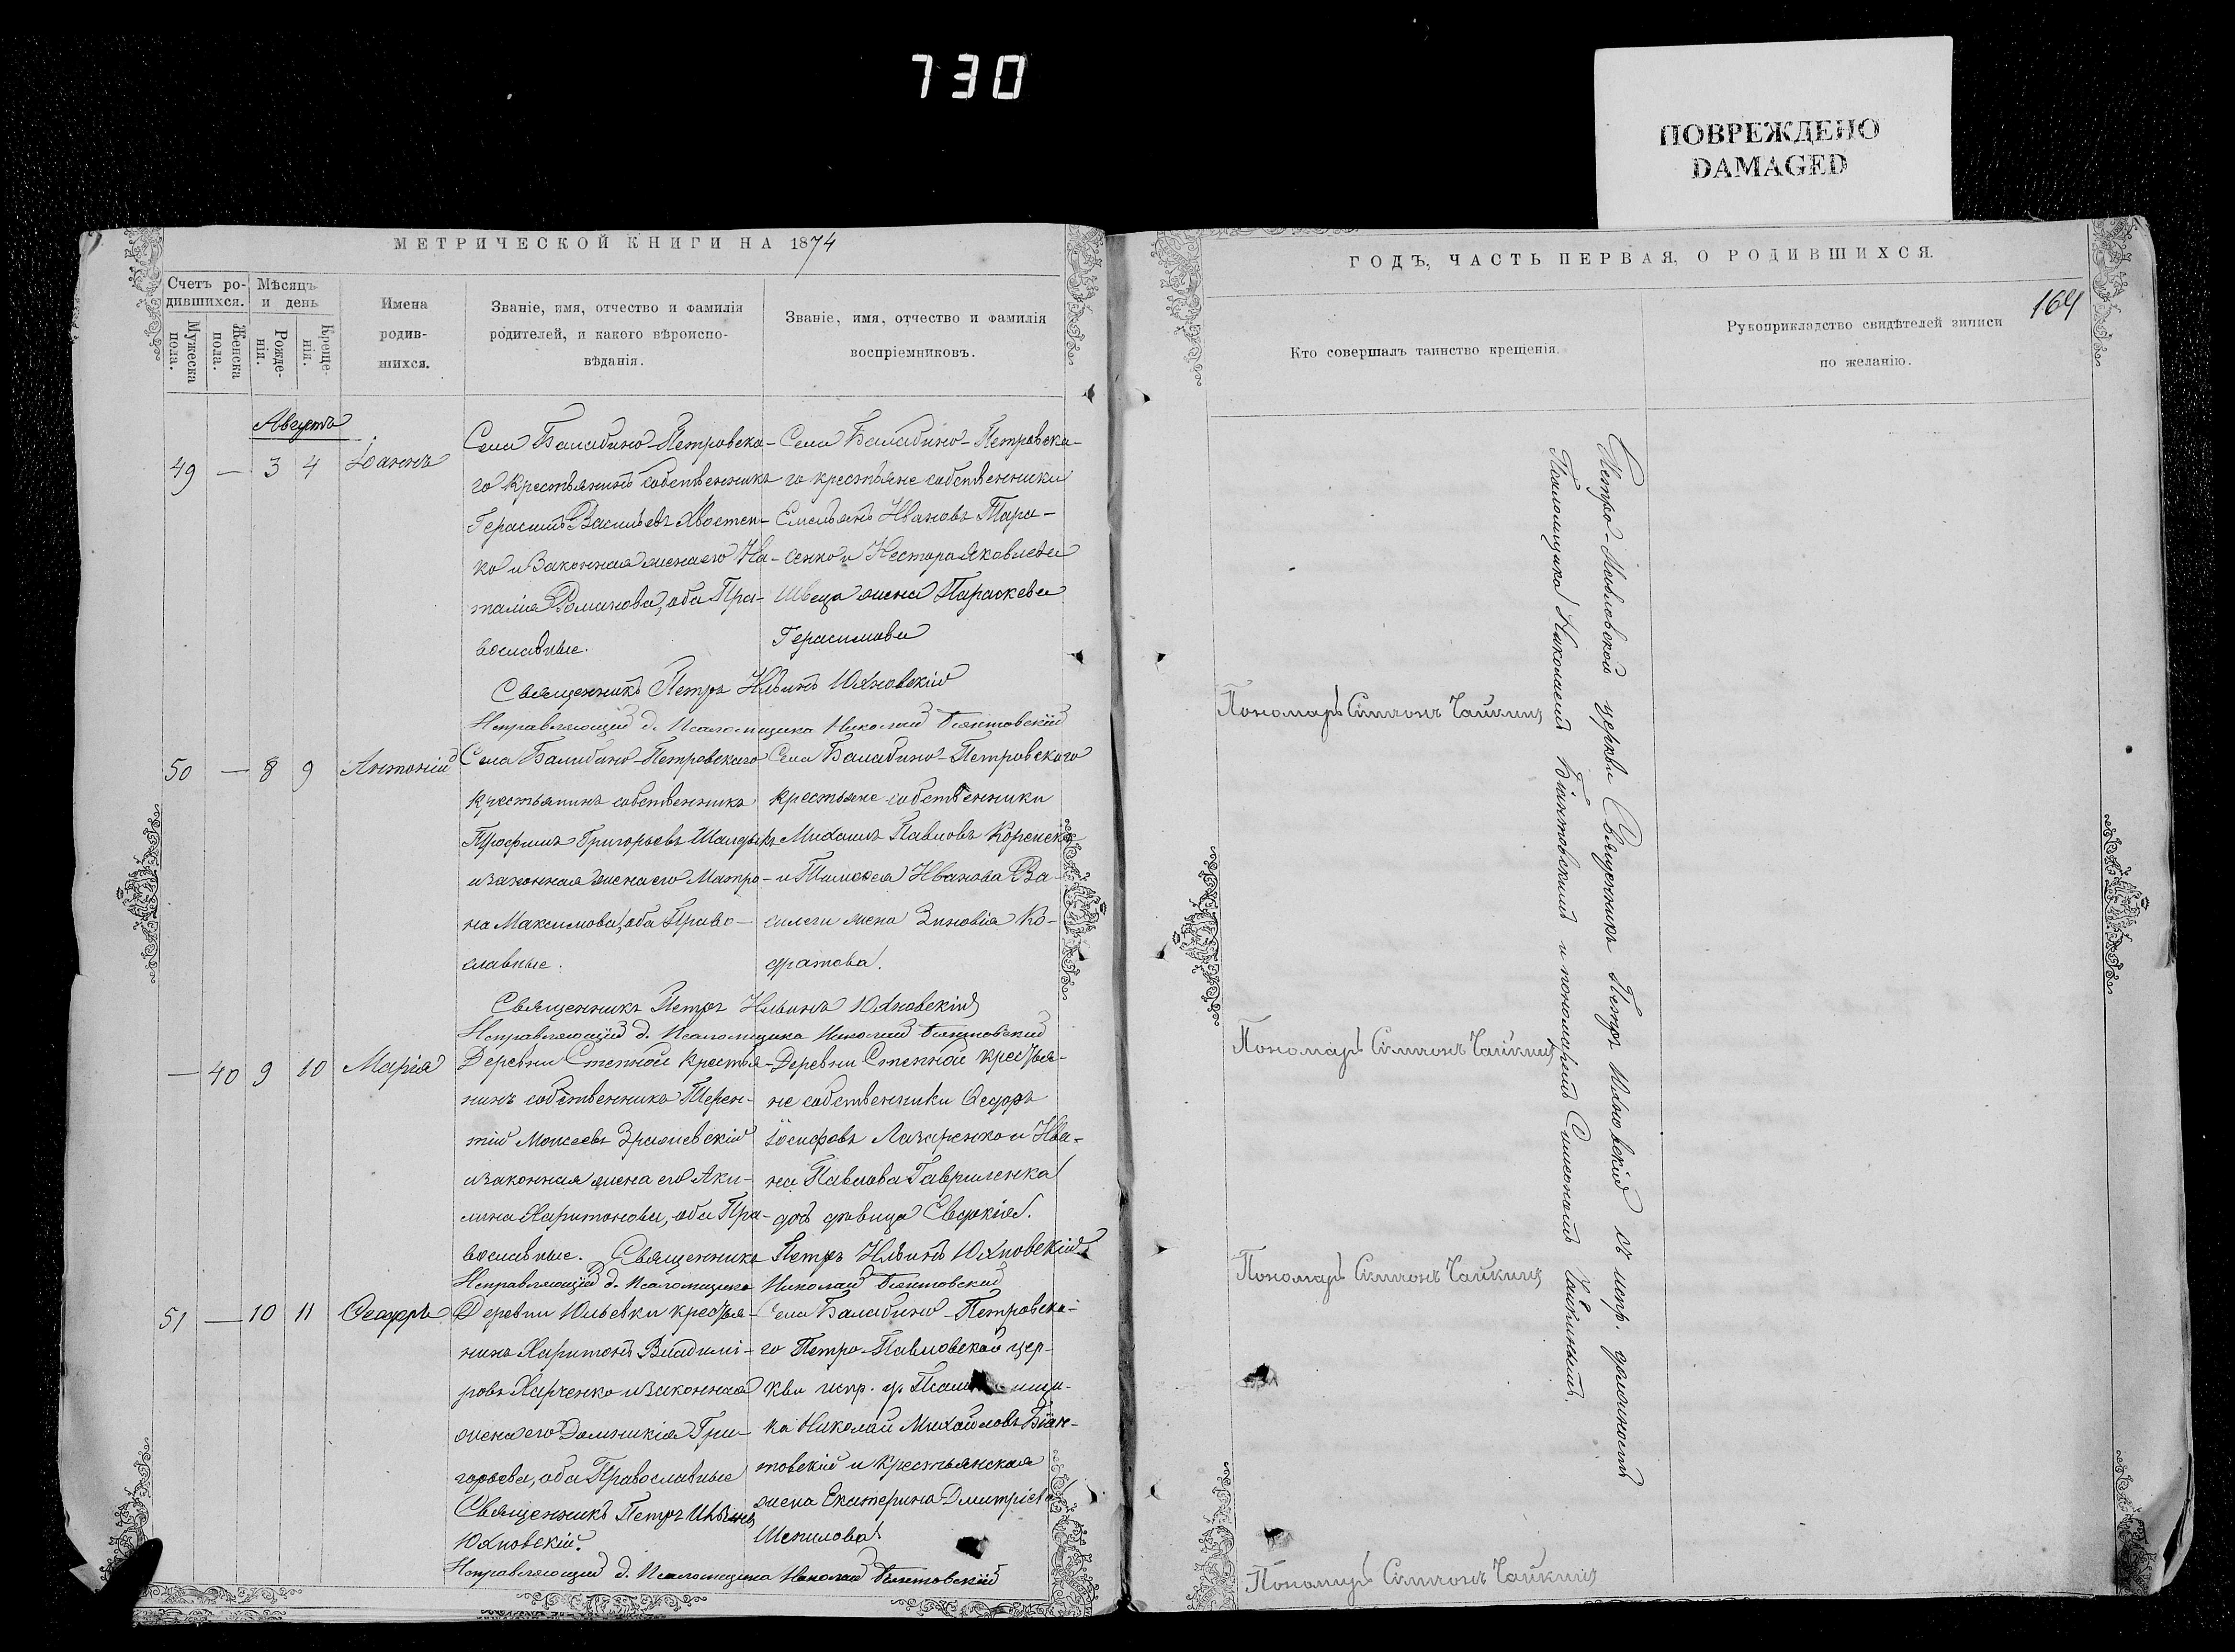 730
ПОВРЕЖДЕНО
DAMAGED
МЕТРИЧЕСКОЙ КНИГИ НА 1874
Счетъ ро-
дившихся.
Мужеска
пола.
Женска
пола.
Мѣсяцъ
и день
Рожде-
нія.
Креще-
нія.
Имена
родив-
шихся.
Званіе, имя, отчество и фамилія
родителей, и какого вѣроиспо-
вѣданія.
Званіе, имя, отчество и фамилія
воспріемниковъ.
Августа
49 — 3 4 Іоаннъ
Села Балабино-Петровска-
го крестьянинъ собственникъ
Герасимъ Васильевъ Хвостен-
ко и законная жена его На-
талія Романова, оба Пра-
вославные.
Села Балабино-Петровска-
го крестьяне собственники
Емельянъ Ивановъ Тара-
сенко и Нестора Яковлева
Швеца жена Параскева
Герасимова
Священникъ Петръ Ильинъ Юхновскій
Исправляющій д. Псаломщика Николай Біянтовскій
50 — 8 9 Антоній
Села Балабино-Петровскаго
крестьянинъ собственникъ
Трофимъ Григорьевъ
и законная жена его Матро-
на Максимова, оба Право-
славные.
Села Балабино-Петровскаго
крестьяне собственники
Михаилъ Павловъ
и Тимофея Иванова Ва-
жена Зиновія Ко-
дратова.
Священникъ Петръ Ильинъ Юхновскій
Исправляющій д. Псаломщика Николай Біянтовскій
— 40 9 10 Марія
Деревни Степной крестья-
нинъ собственникъ Терен-
тій Моисеевъ
и законная жена его Аки-
лина Харитонова, оба Пра-
вославные.
Деревни Степной крестья-
не собственники Ѳедоръ
Іосифовъ Лазаренко и Ива-
на Павлова Гавриленка
дочь дѣвица Евдокія.
Священникъ Петръ Ильинъ Юхновскій
Исправляющій д. Псаломщика Николай Біянтовскій
51 — 10 11 Ѳеодоръ
Деревни Юльевки крестья-
нинъ Харитонъ Владимі-
ровъ Харченко и законная
жена его Домникія Гри-
горьева, оба Православные
Села Балабино-Петровска-
го Петро-Павловской цер-
кви испр. д. Псаломщи-
ка Николай Михайловъ Біян-
товскій и крестьянская
жена Екатерина Дмитріева
Шепилова
Священникъ Петръ Ильинъ
Юхновскій.
Исправляющій д. Псаломщика Николай Біянтовскій
ГОДЪ, ЧАСТЬ ПЕРВАЯ, О РОДИВШИХСЯ.
164
Кто совершалъ таинство крещенія.
Рукоприкладство свидѣтелей записи
по желанію.
Петро-Павловской церкви Священникъ Петръ Юхновскій съ испр. должность
Псаломщика Николаемъ Біянтовскимъ и пономаремъ Симеономъ Чайкинымъ.
Пономарь Симеонъ Чайкинъ
Пономарь Симеонъ Чайкинъ
Пономарь Симеонъ Чайкинъ
Пономарь Симеонъ Чайкинъ